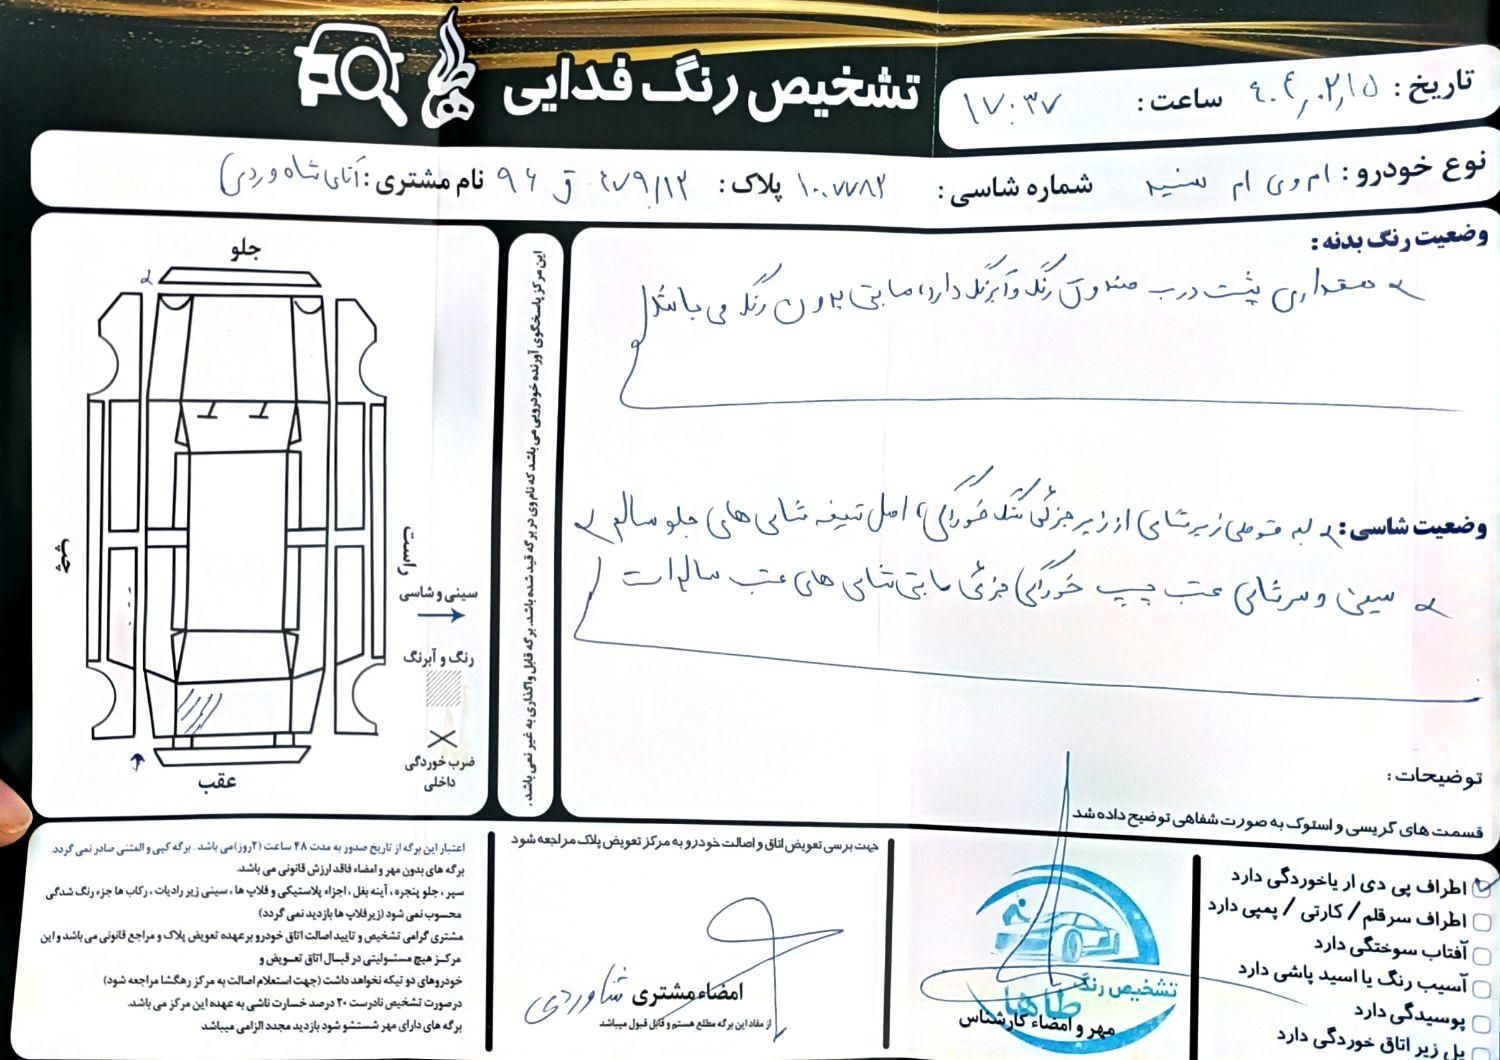 تشخیص رنگ فدایی
تاریخ : ۴۰۴,۰۲,۱۵ ساعت : ۱۷:۳۷
نوع خودرو : ام وی ام سفید شماره شاسی : ۱۰۰۷۷۸۲ پلاک : ۱۲/۹ ق ۹۶ نام مشتری : آقای شاه وردی
وضعیت رنگ بدنه :
مقداری پشت درب صندوق رنگ و آبرنگ دارد، مابقی بدون رنگ می باشد
وضعیت شاسی : لبه قوطی زیر شاسی از زیر جزئی خوردگی، اصل تیغه شاسی های جلو سالم
سینی و سر شاسی عقب چپ خوردگی جزئی مابقی شاسی های عقب سالم است
توضیحات :
قسمت های گریسی و استوک به صورت شفاهی توضیح داده شد
این مرکز پاسخگوی آورنده خودرویی می باشد که نام وی در برگه قید شده باشد. برگه قابل واگذاری به غیر نمی باشد.
جلو
چپ
راست
سینی و شاسی
رنگ و آبرنگ
ضرب خوردگی
داخلی
عقب
اطراف پی دی ار یا خوردگی دارد
اطراف سرقلم / کارتی / پمپی دارد
آفتاب سوختگی دارد
آسیب رنگ یا اسید پاشی دارد
پوسیدگی دارد
پل زیر اتاق خوردگی دارد
تشخیص رنگ
طاها
مهر و امضاء کارشناس
جهت برسی تعویض اتاق و اصالت خودرو به مرکز تعویض پلاک مراجعه شود
امضاء مشتری شاوردی
از مفاد این برگه مطلع هستم و قابل قبول میباشد
اعتبار این برگه از تاریخ صدور به مدت ۴۸ ساعت (۲روز)می باشد . برگه کپی و المثنی صادر نمی گردد.
برگه های بدون مهر و امضاء فاقد ارزش قانونی می باشد.
سپر ، جلو پنجره ، آینه بغل ، اجزاء پلاستیکی و فلاپ ها ، سینی زیر رادیات ، رکاب ها جزء رنگ شدگی
محسوب نمی شود (زیر فلاپ ها بازدید نمی گردد)
مشتری گرامی تشخیص و تایید اصالت اتاق خودرو بر عهده تعویض پلاک و مراجع قانونی می باشد و این
مرکز هیچ مسئولیتی در قبال اتاق تعویض و
خودروهای دو تیکه نخواهد داشت (جهت استعلام اصالت به مرکز رهگشا مراجعه شود)
در صورت تشخیص نادرست ۲۰ درصد خسارت ناشی به عهده این مرکز می باشد.
برگه های دارای مهر شستشو شود بازدید مجدد الزامی میباشد